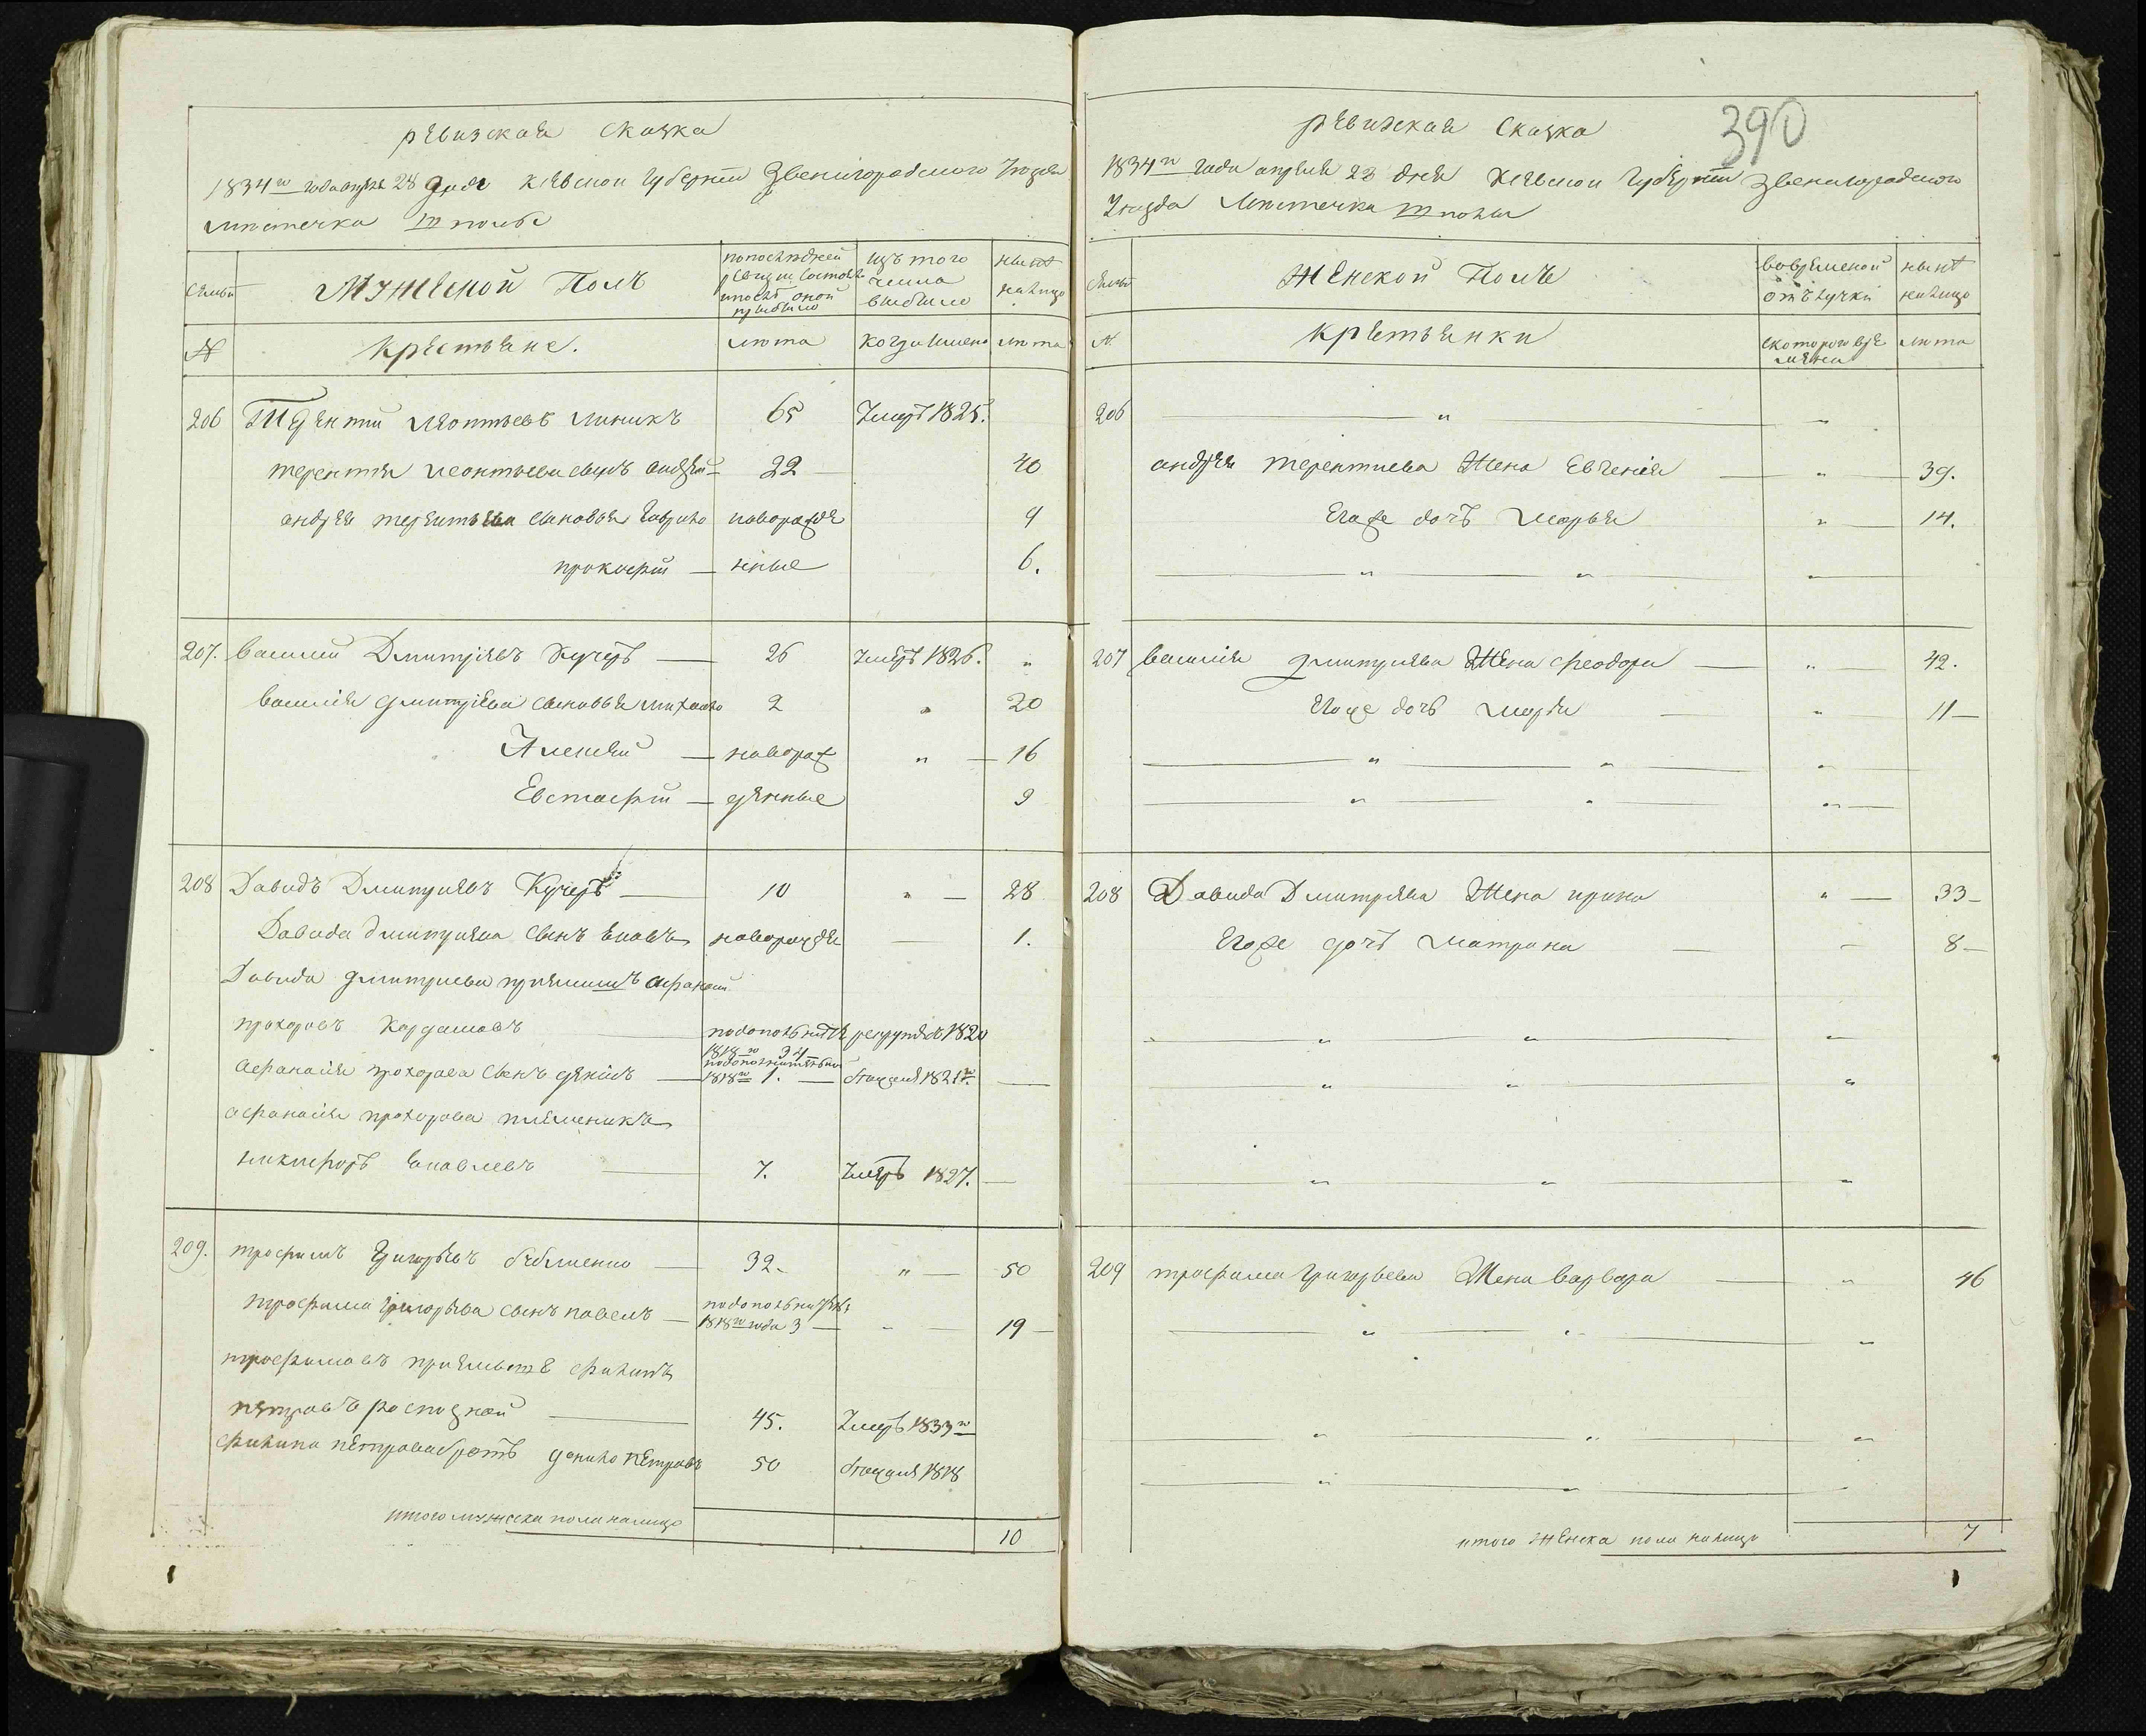 ревизская сказка
1834го года апреля 28 дня киевской губернии Звенигородского уезда
местечка Шполы
семьи
Мужеской Полъ
по последней ревизии состояло и после оной прибыло
изъ того числа выбыло
ныне налицо
№
крестьяне.
лета
когда именно
лета
206 Терентий леонтьевъ линикъ 65 умеръ 1825.
терентия леонтьева сынъ андрей 22 40
андрея терентьева сыновья гаврило новорожде 9
прокофий нные 6.
207. василий Дмитриевъ Кучеръ 26 умеръ 1826. "
василия дмитриева сыновья михайло 2 " 20
Алексей новорож " 16
Евстафий денные 9
208 Давидъ Дмитриевъ Кучеръ 10 " 28
Давида дмитриева сынъ яковъ новорожде 1.
Давида дмитриева приемышъ афанасий
прохоровъ Кардашовъ по дополните рекрутъ 1820
1818го 34
афанасия прохорова сынъ денисъ по дополнительной 1818го 1. бежалъ 1821го
афанасия прохорова племеникъ
никифоръ яковлевъ 7. умеръ 1827.
209. трофимъ григорьевъ 32 " 50
трофима григорьева сынъ павелъ по дополнитель 1818го года 3 " 19
трофимовъ филипъ
петровъ 45. умеръ 1833го
филипа петрова братъ данило петровъ 50 бежалъ 1818
итого мужеска пола налицо 10
390
ревизская сказка
1834го года апреля 28 дня киевской губернии звенигородского
уезда местечка Шполы
семьи
Женской Полъ
во временной отълучки
ныне налицо
№
крестьянки
с которого времени
лета
206 "
андрея терентиева жена Евгения " 39.
Егоже дочь марья " 14.
" " "
207 василия дмитриева жена феодора " 42.
Егоже дочь марья " 11
" " "
" " "
208 Давида Дмитриева жена ирина " 33
Егоже дочь матрона 8
" " "
" " "
" " "
209 трофима григорьева жена варвара " 46
" " "
" " "
" "
итого женска пола налицо 7